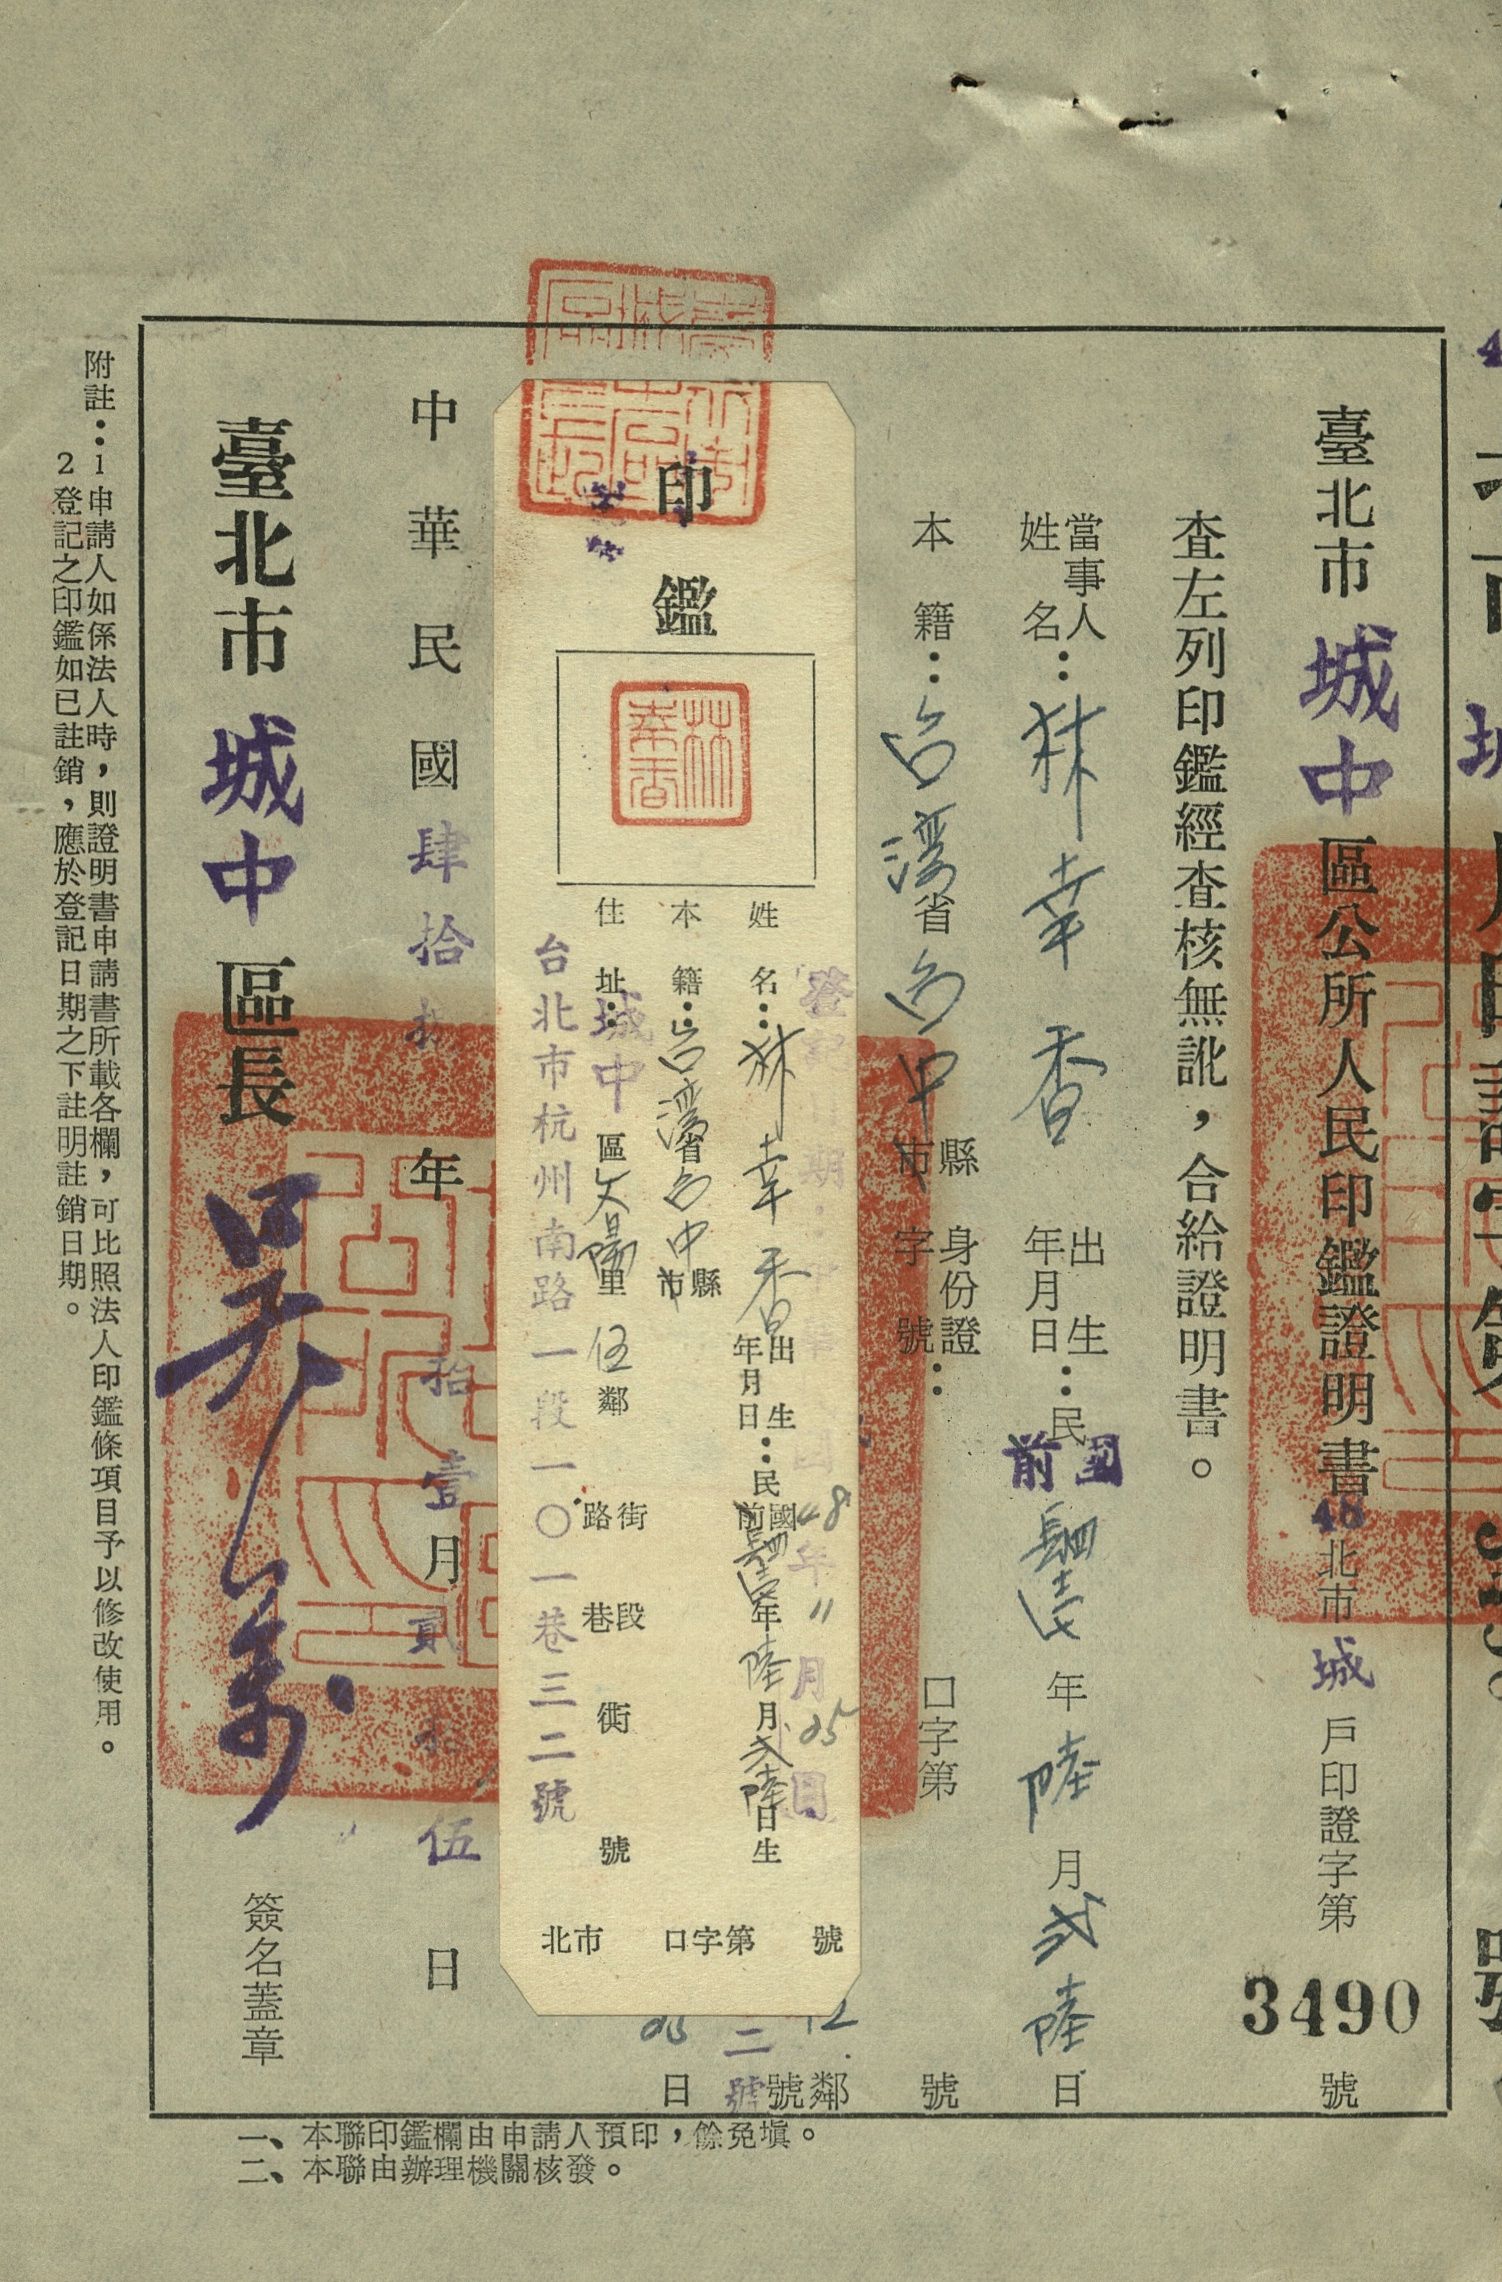 臺北市城中區公所人民印鑑證明書 48北市城戶印證字第3490號
查左列印鑑經查核無訛，合給證明書。
當事人姓名：林幸香 出生年月日：民國前 年陸月貳陸日
本籍：台灣省台中縣市 身份證字號： 口字第 號
鄰
號
二號
25日
印鑑
林幸香
登記 期 48年11月25日
姓名：林幸香 出生年月日：民國前 年陸月貳陸日生
本籍：台灣省台中縣市
住址：城中區文陽里伍鄰 街路 段巷 衖 號
台北市杭州南路一段一〇一巷三二號
北市 口字第 號
中華民國肆拾捌年拾壹月貳拾伍日
臺北市城中區長 吳 簽名蓋章
附註：1申請人如係法人時，則證明書申請書所載各欄，可比照法人印鑑條項目予以修改使用。
2登記之印鑑如已註銷，應於登記日期之下註明註銷日期。
一、本聯印鑑欄由申請人預印，餘免填。
二、本聯由辦理機關核發。